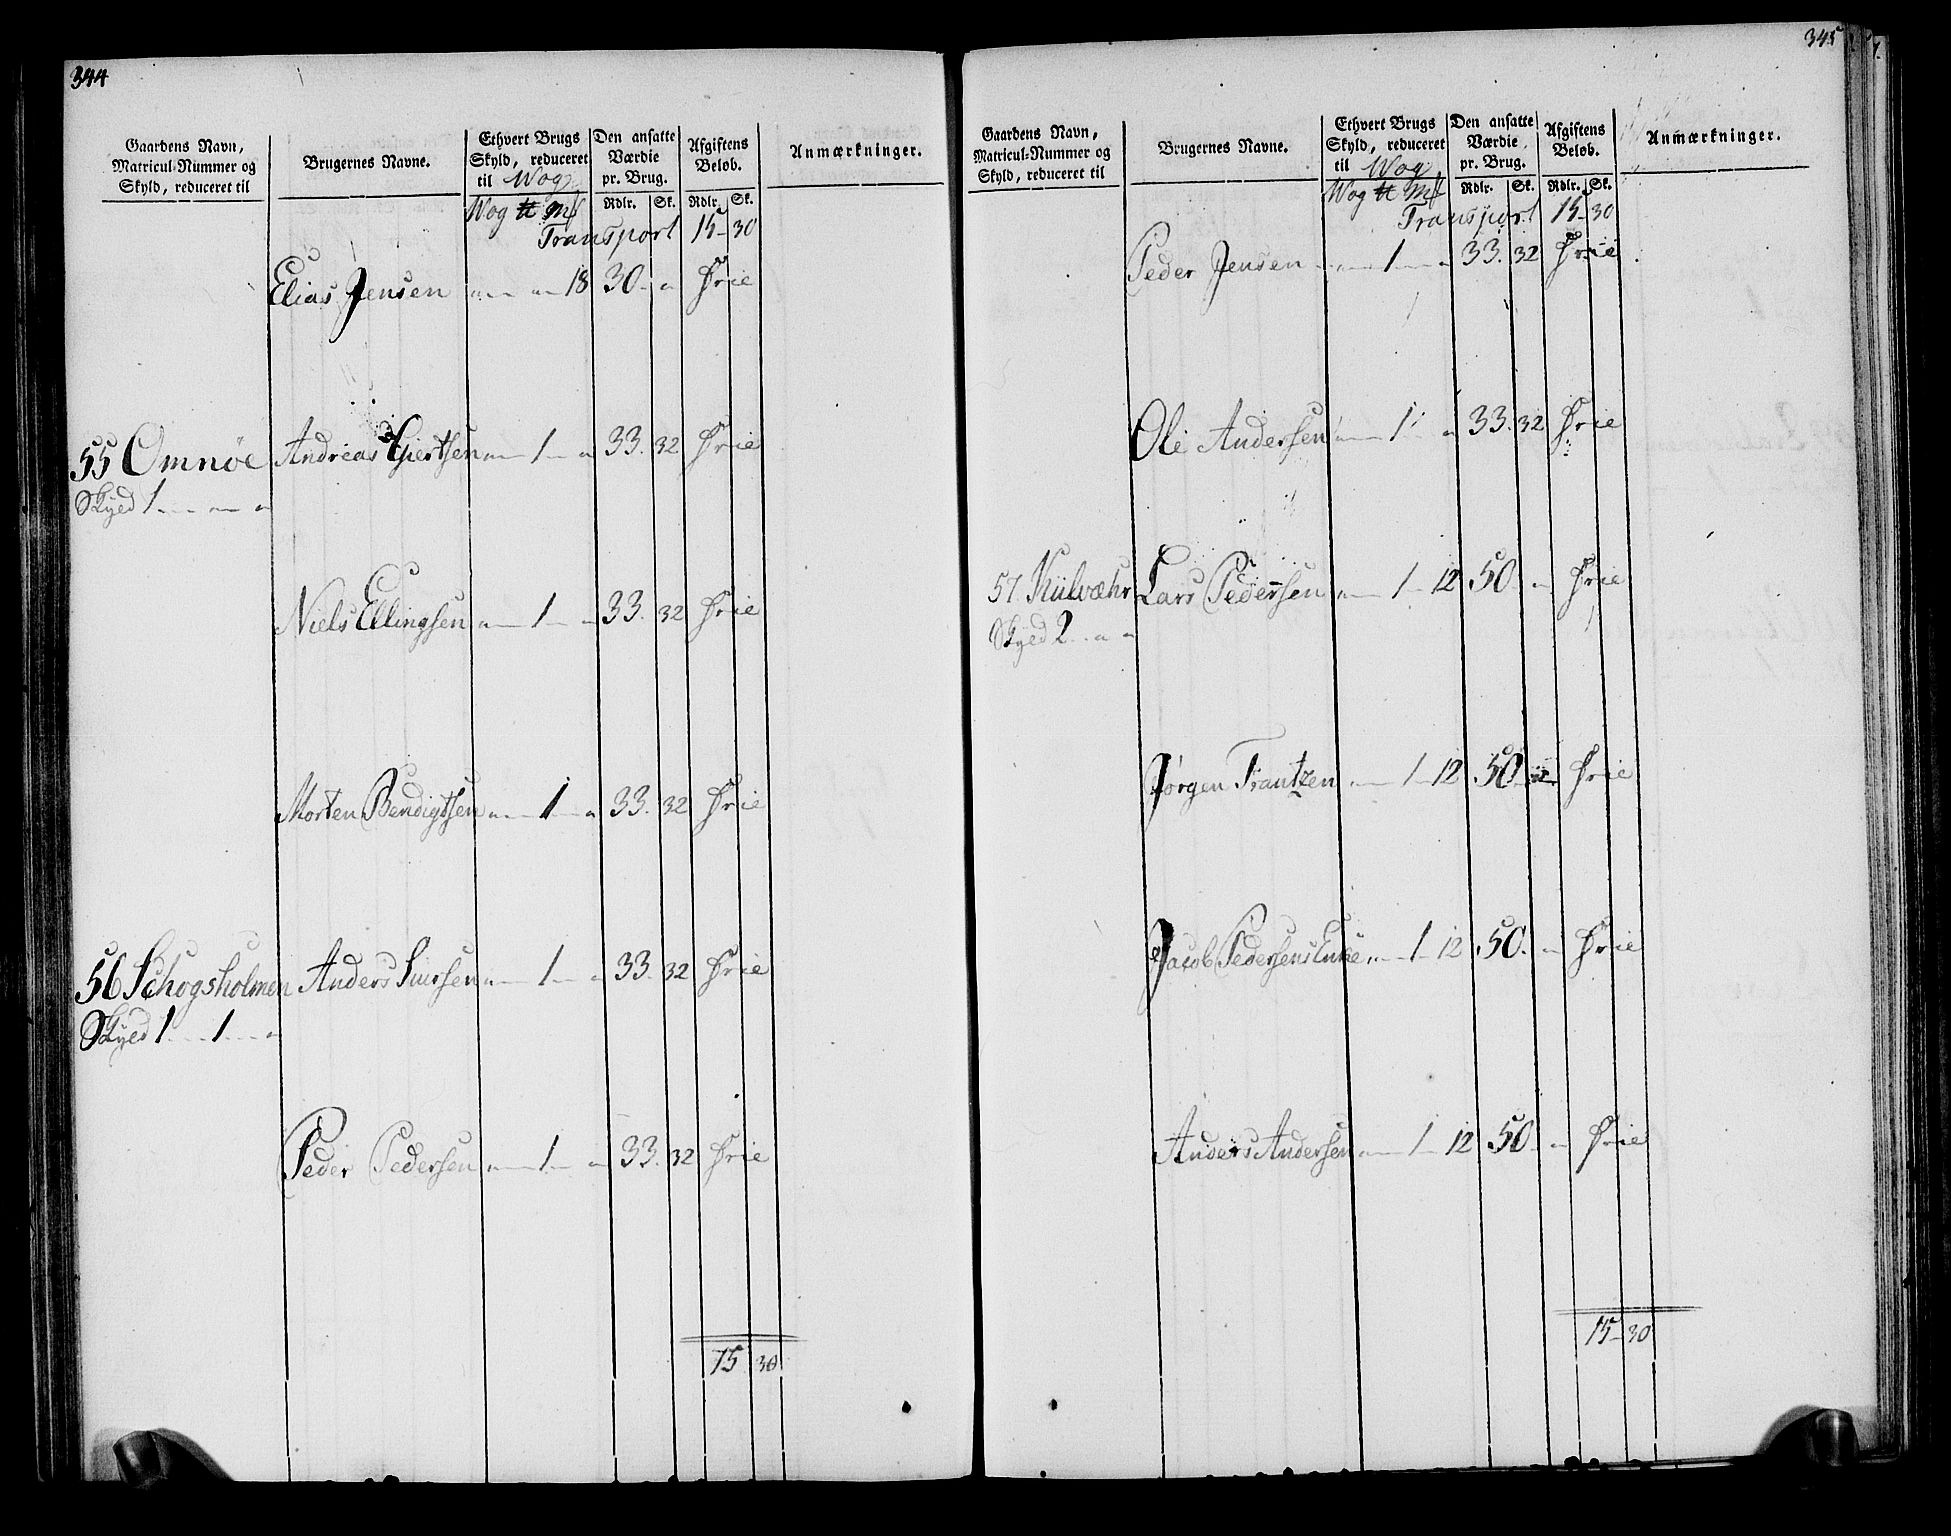 344
Gaardens Navn, Matricul-Nummer og Skyld, reduceret til | Brugernes Navne. | Ethvert Brugs Skyld, reduceret til Wog | Den ansatte Værdie pr. Brug. | Afgiftens Beløb. | Anmærkninger.
Wog ℔ Mk | Rdlr. | Sk. | Rdlr. | Sk.
Transport 15 30
Elias Jensen 18 30 Frie
55 Omnøe Andreas Giertsen 1 33. 32 Frie
Skyld 1
Niels Ellingsen 1 33. 32 Frie
Morten Bendigtsen 1 33. 32 Frie
56 Schogsholmen Anders Siursen 1 33. 32 Frie
Skyld 1 1
Peder Pedersen 1 33. 32 Frie
15 30
345
Gaardens Navn, Matricul-Nummer og Skyld, reduceret til | Brugernes Navne. | Ethvert Brugs Skyld, reduceret til Wog | Den ansatte Værdie pr. Brug. | Afgiftens Beløb. | Anmærkninger.
Wog ℔ Mk | Rdlr. | Sk. | Rdlr. | Sk.
Transport 15 30
Peder Jensen 1 33. 32 Frie
Ole Andersen 1 33. 32 Frie
57. Kulvæhr Lars Pedersen 1 12 50 Frie
Skyld 2
Jørgen Frantzen 1 12 50 Frie
Jacob Pedersens Enke 1 12 50. Frie
Anders Andersen 1 12 50 Frie
15 30